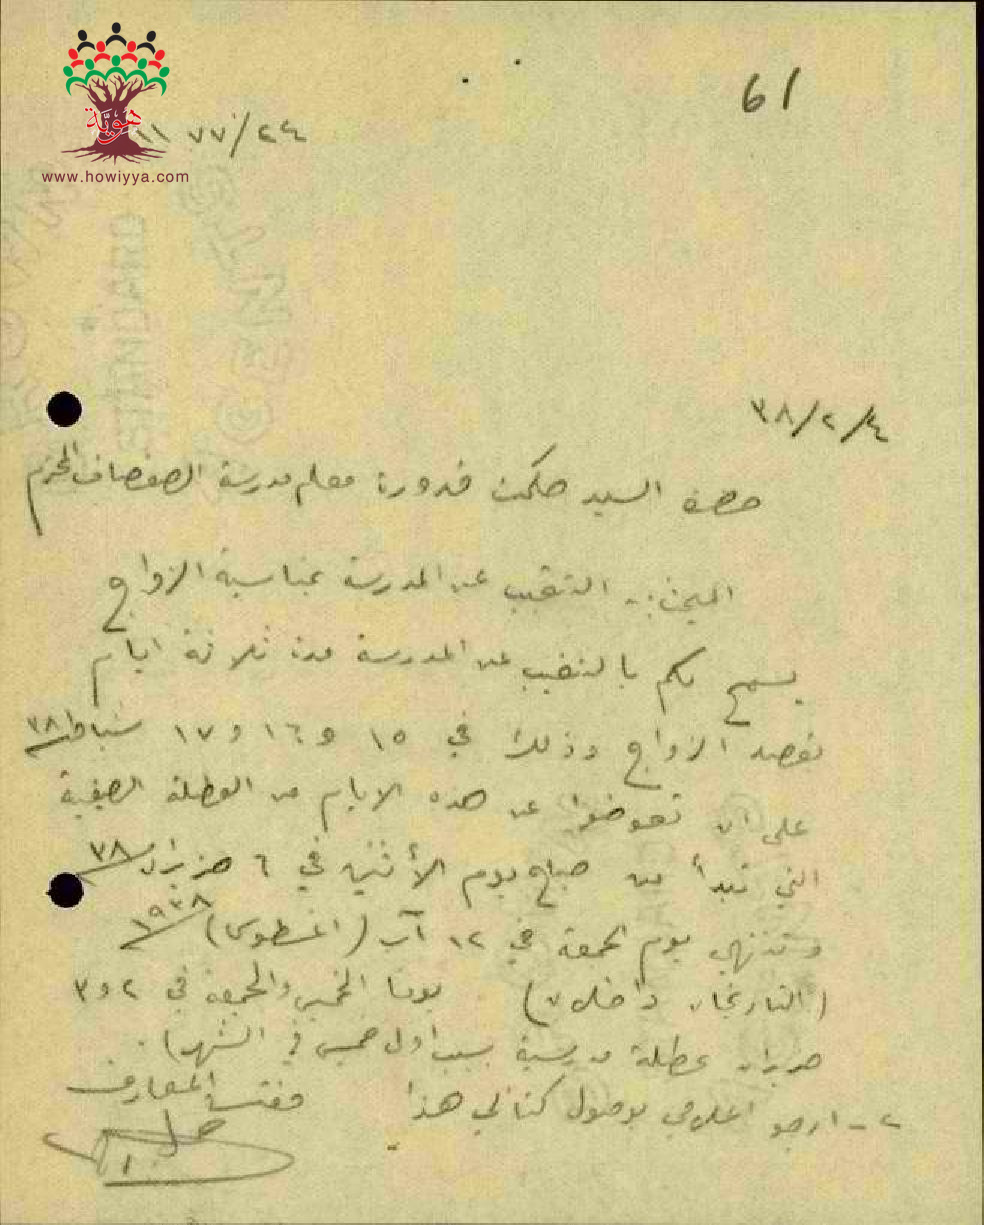 61
هوية
www.howiyya.com
١١ ٧٧/٢٤
٣٨/٢/٤
حضرة السيد حكمت قدورة معلم مدرسة الصفصاف المحترم
المبحث:- التغيب عن المدرسة بمناسبة الزواج
يسمح لكم بالتغيب عن المدرسة مدة ثلاثة ايام
بقصد الزواج وذلك في ١٥ و ١٦ و ١٧ شباط ٣٨
على ان تعوضوا عن هذه الايام من العطلة الصيفية
التي تبدأ من صباح يوم الأثنين في ٦ حزيران ٣٨
وتنتهي يوم الجمعة في ١٢ آب (اغسطوس) ١٩٣٨
(التاريخان داخلان) يوما الخميس والجمعة في ٢ و ٣
حزيران عطلة مدرسية بسبب اول خميس في الشهر).
٢- ارجو اعلامي بوصول كتابي هذا
مفتش المعارف